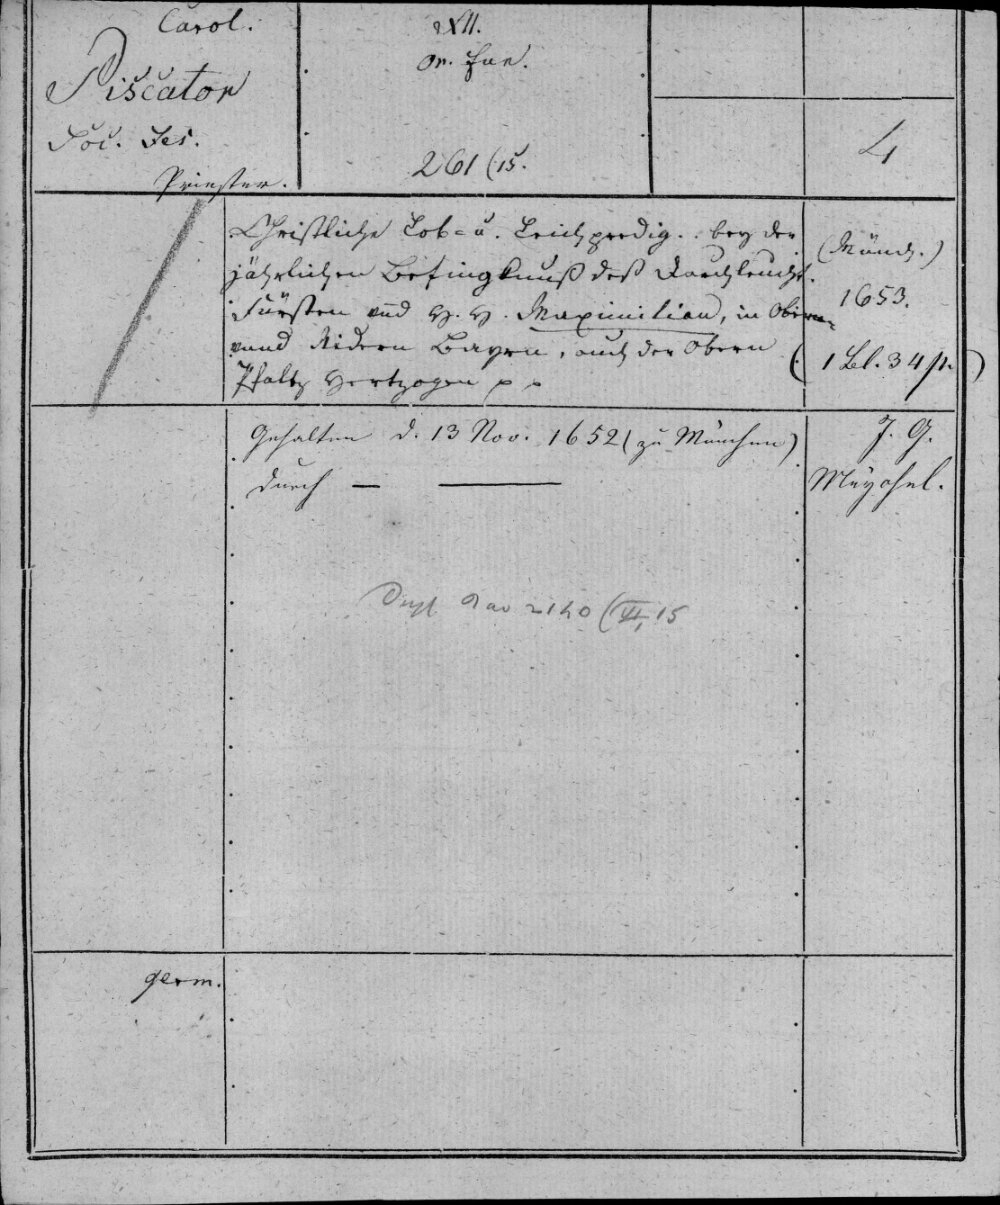 Carol.
Piscator
Soc. Jes.
Priester.
XII.
Or. fun.
261 (15.
4
Christliche Lob= u. Leichpredig . . bey der
jährlichen Besingknuß deß Durchleucht.
Fürsten und H. H. Maximilian, in Obern=
vnnd Nidern Bayrn, auch der Obern
Pfaltz Hertzogen
(Münch.)
1653.
(1 Bl. 34 p.)
Gehalten d. 13 Nov. 1652 (zu München)
durch — ———
J. G.
Bav 2140 (VI, 15
germ.